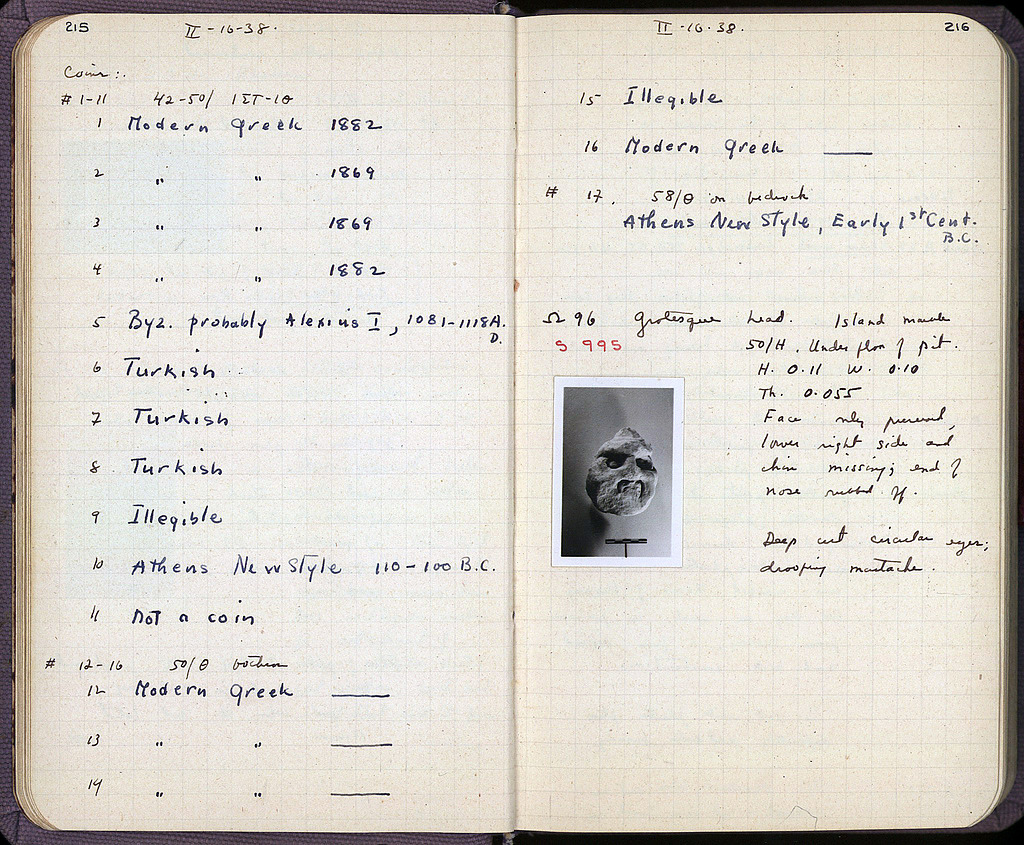 215
II-16-38.
Coins:.
#1-11 42-50/ IΣT-IΘ
1 Modern Greek 1882
2 〃 〃 1869
3 〃 〃 1869
4 〃 〃 1882
5 Byz. probably Alexius I, 1081-1118 A.
D.
6 Turkish
7 Turkish
8. Turkish
9 Illegible
10 Athens New Style 110-100 B.C.
11 Not a coin
# 12-16 50/Θ bothros
12 Modern Greek —
13 〃 〃 —
14 〃 〃 —
II-16-38.
216
15 Illegible
16 Modern Greek —
# 17. 58/Θ on bedrock
Athens New Style, Early 1st Cent.
B.C.
Ω 96 Grotesque head. Island marble
S 995
50/H. Under floor of pit.
H. 0.11 W. 0.10
Th. 0.055
Face only preserved,
lower right side and
chin missing; end of
nose rubbed off.
Deep cut circular eyes;
drooping mustache.